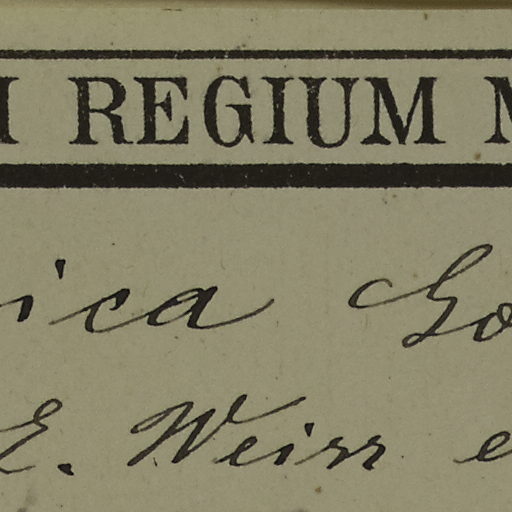 I REGIUM
ica Go
E. Weiss e